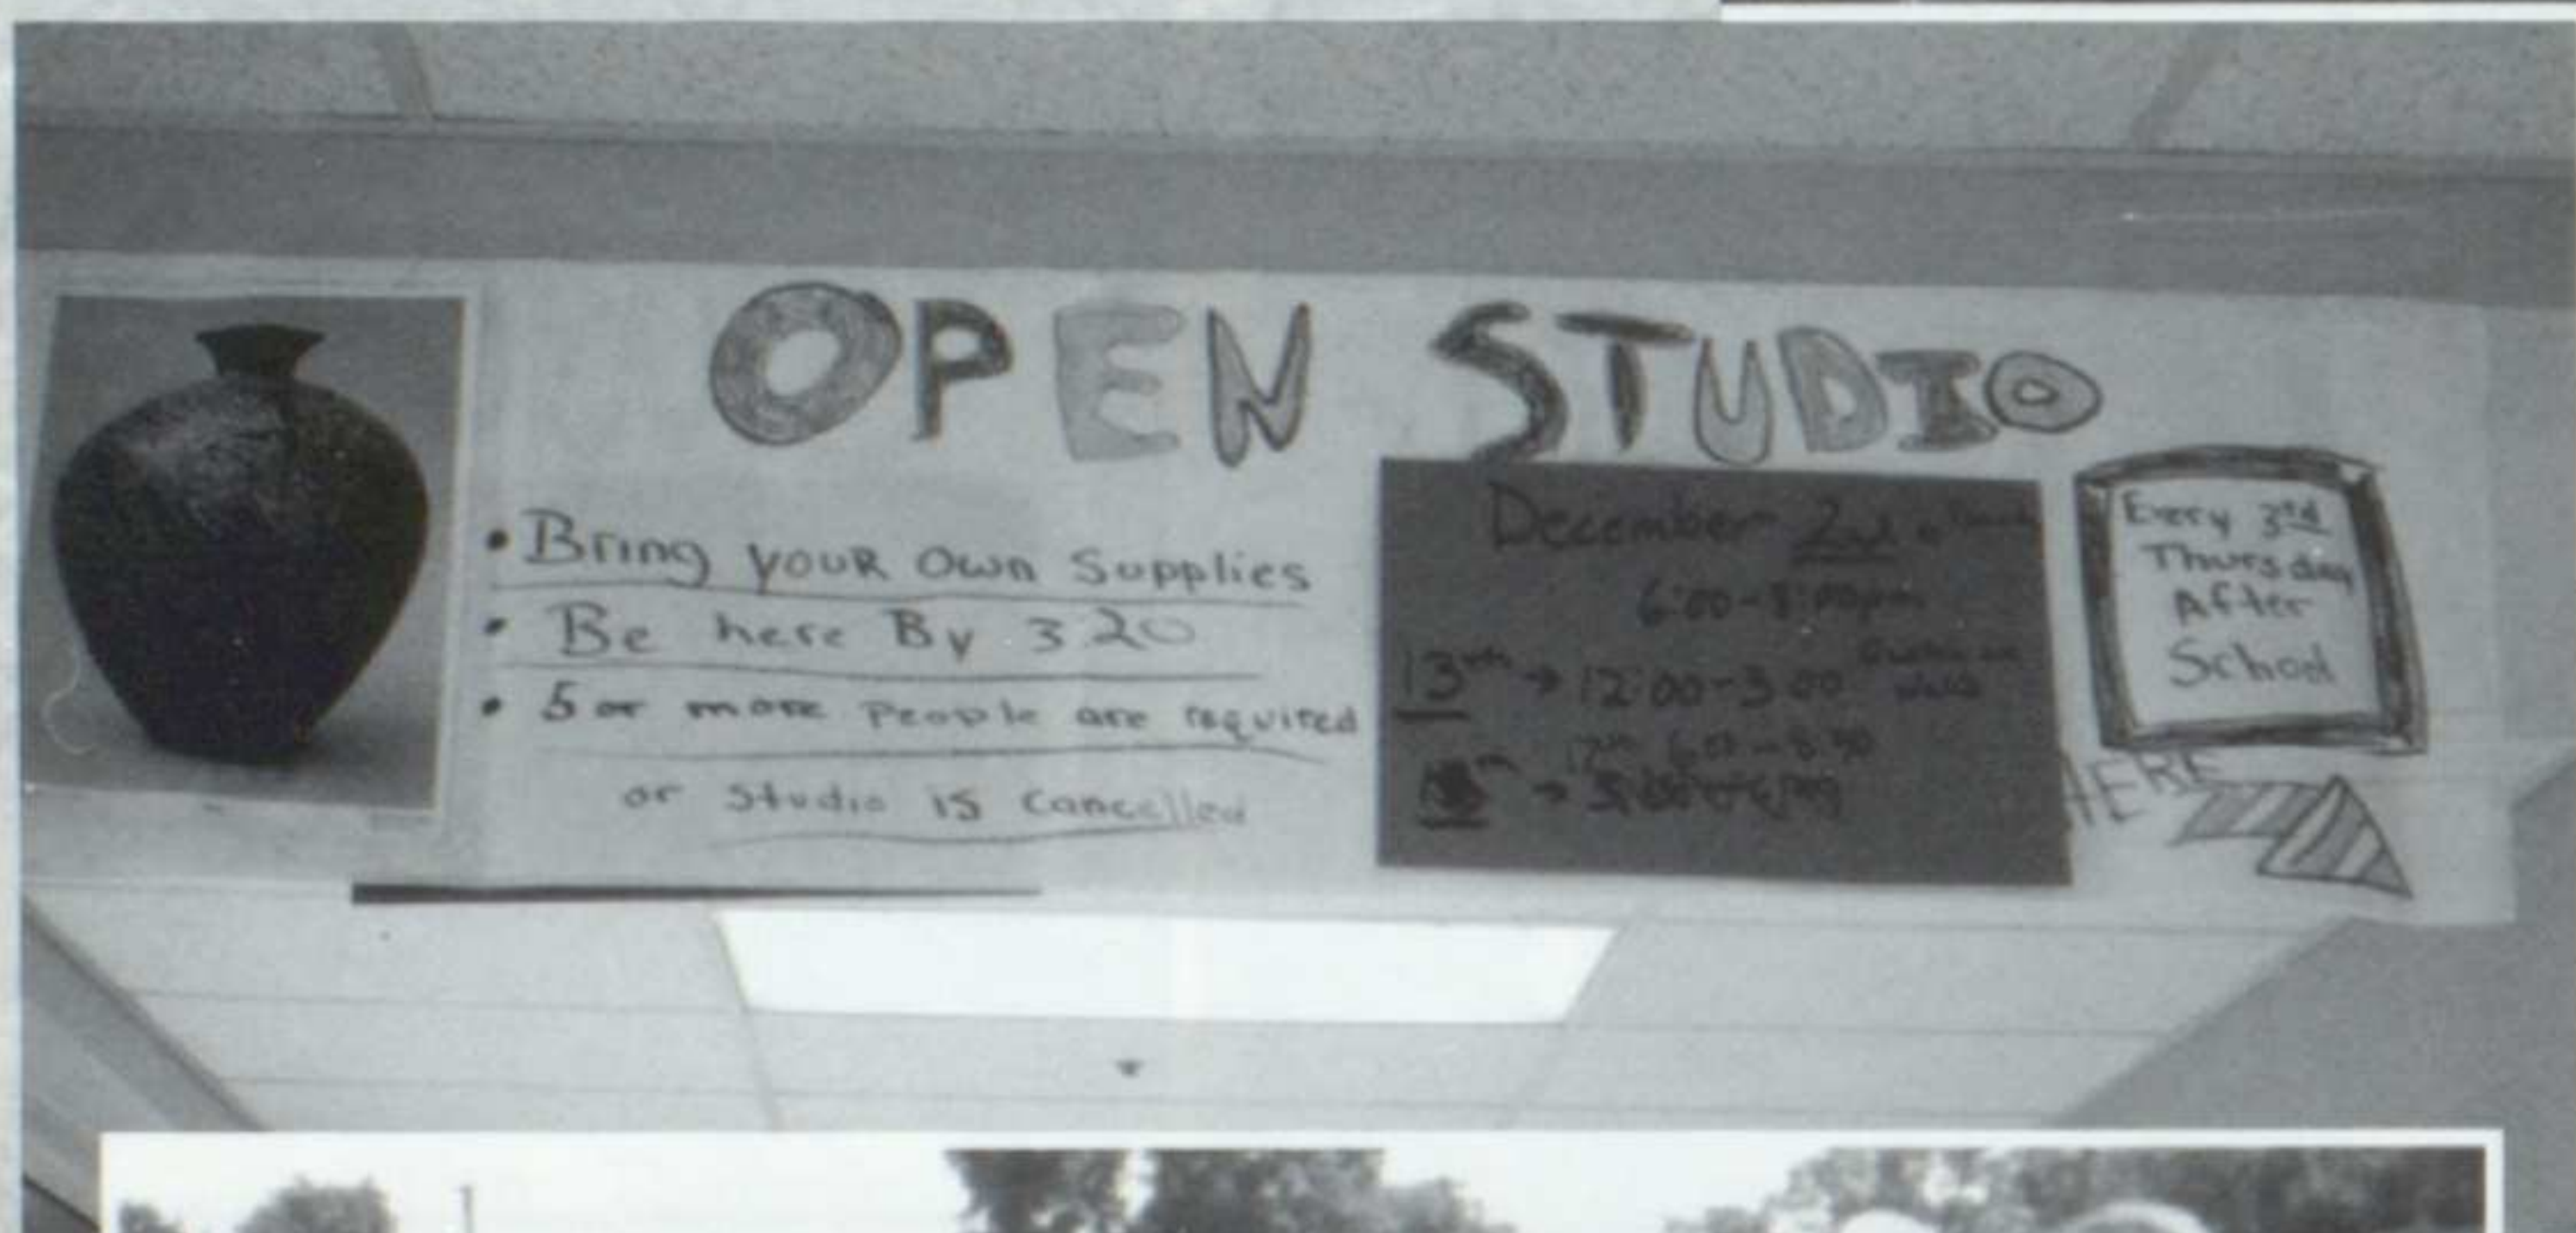 OPEN STUDIO
• Bring YOUR Own Supplies
• Be here By 3 20
• 5 or more People are required
or Studio is Cancelled
December 2nd
6:00-8:00pm
13th → 12:00-3:00
17th 6:00-8:30
Every 3rd
Thursday
After
School
HERE